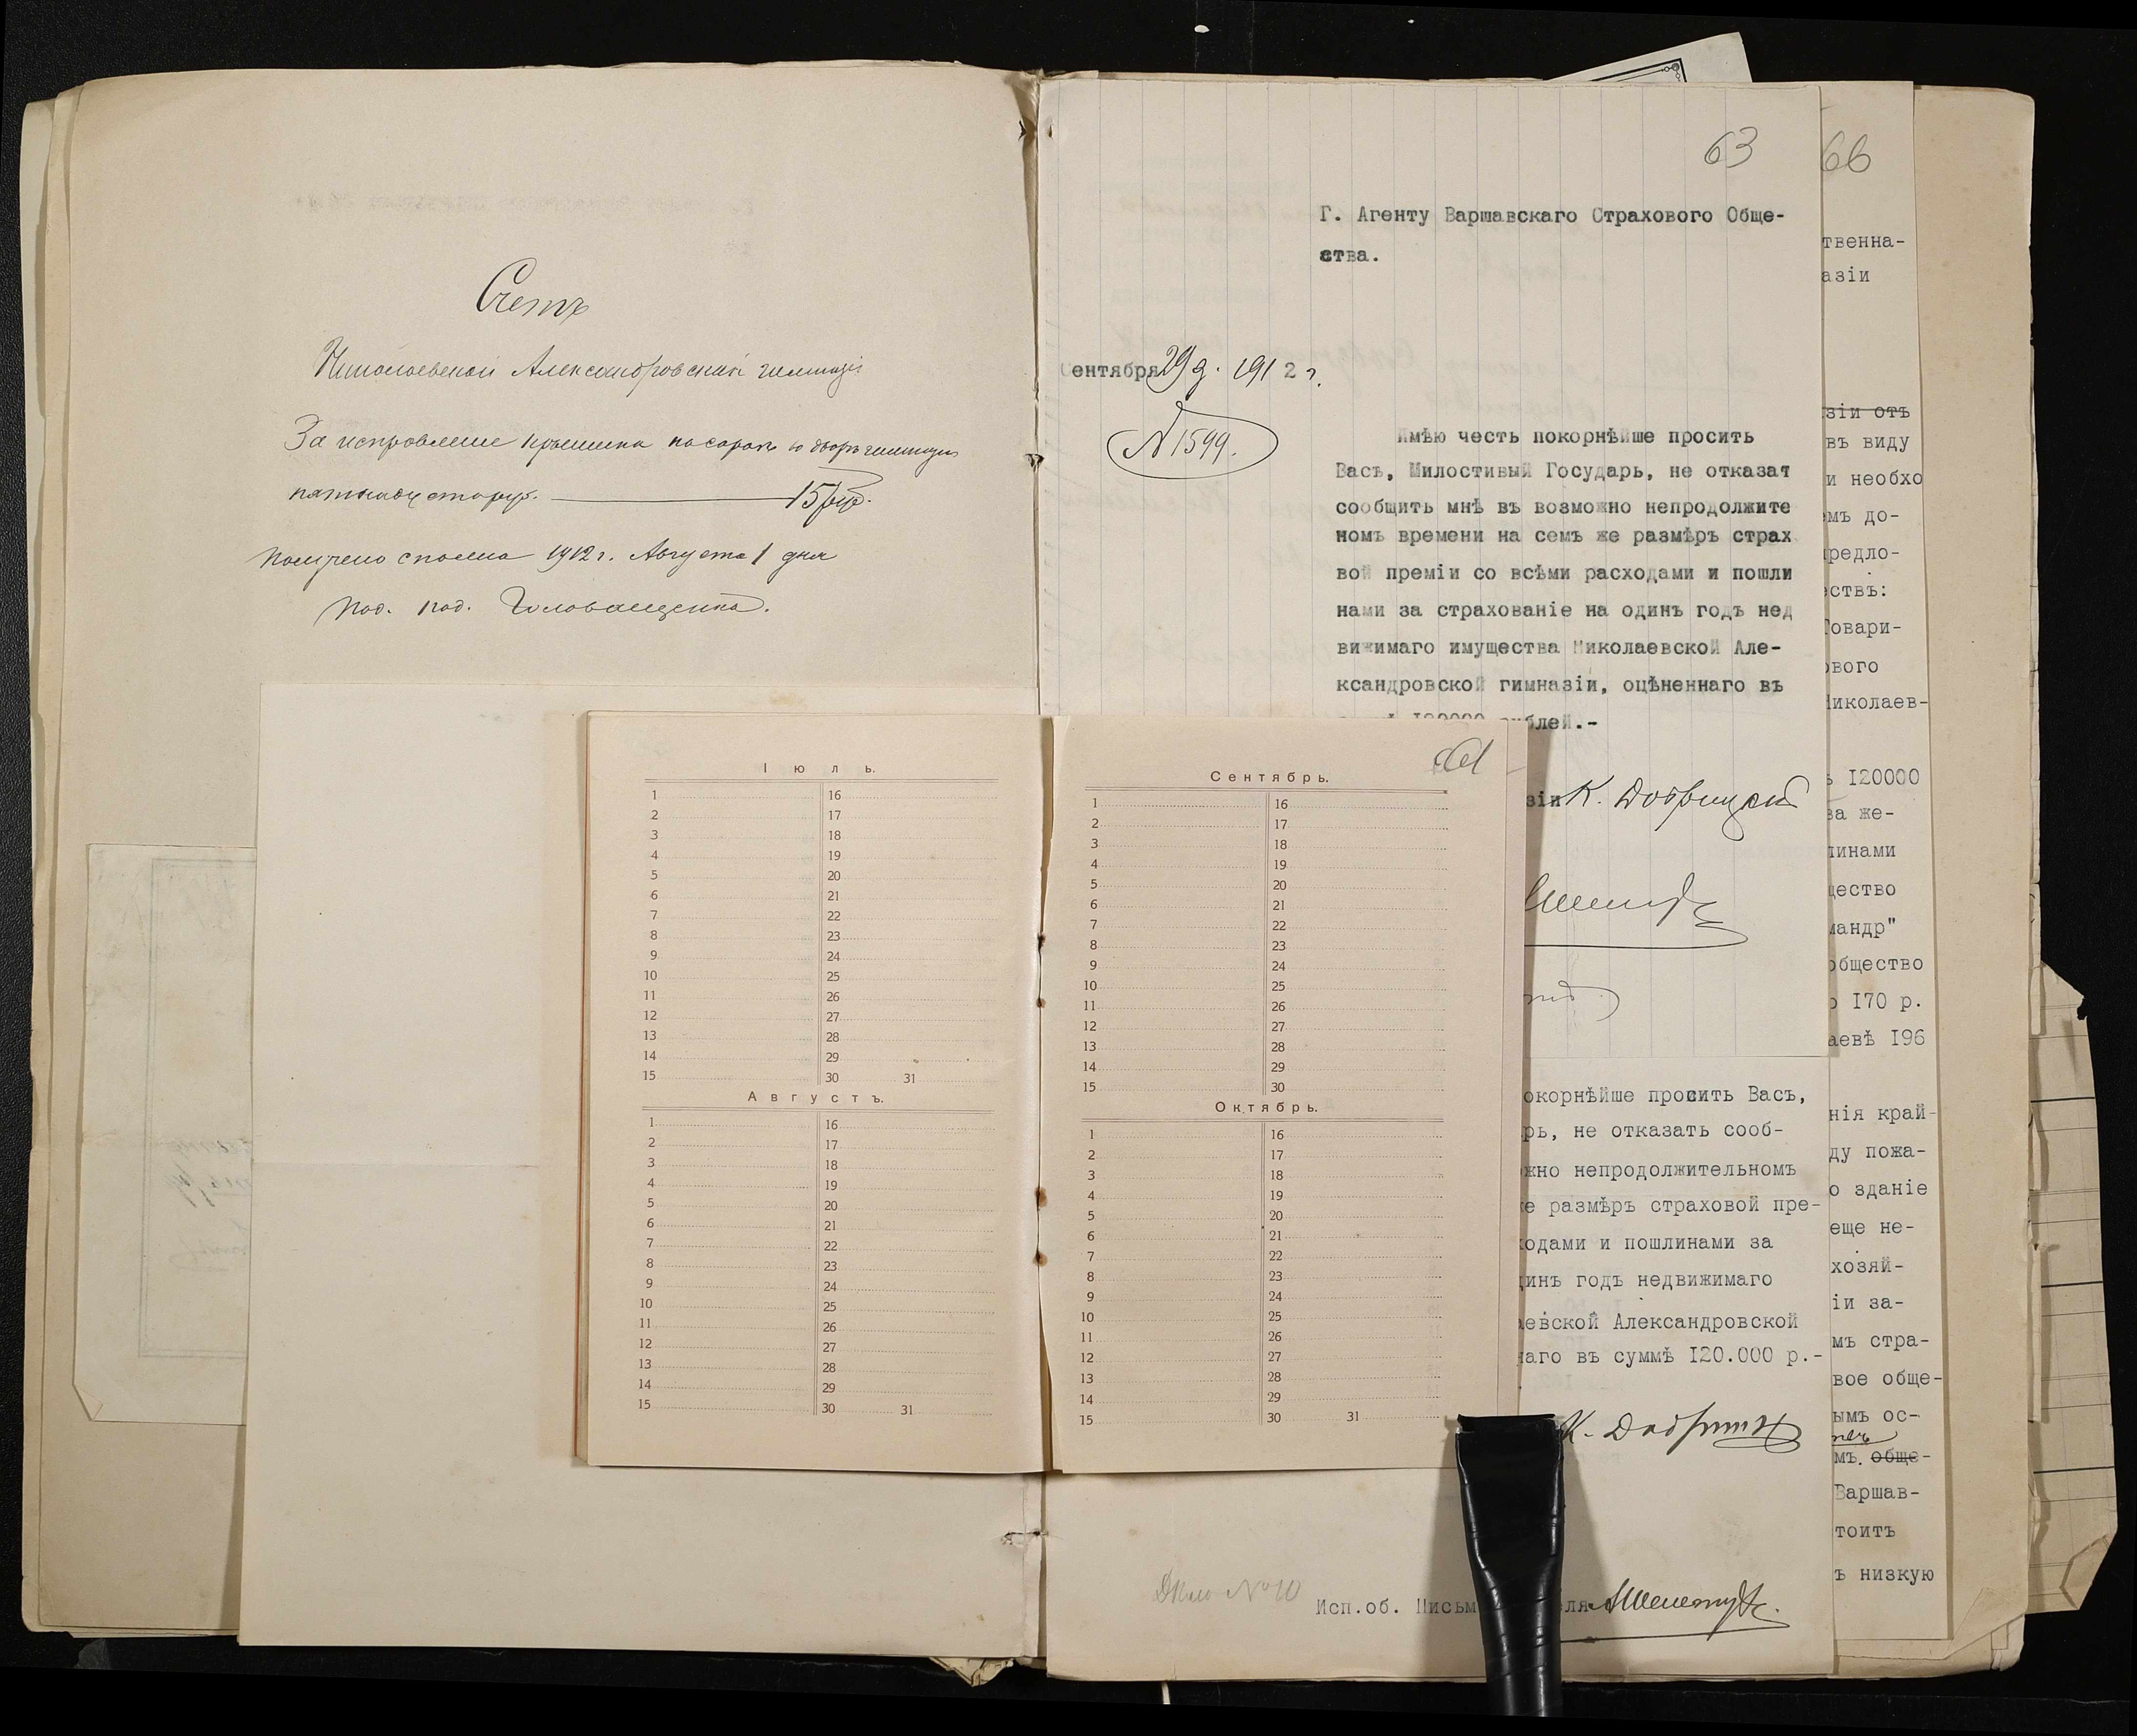 Счетъ
Николаевской Александровской гимназіи
За исправление крышника на сараѣ во дворѣ гимназіи
пятнадцать руб. 15 руб.
Получено сполна 1912 г. Августа 1 дня
63
Г. Агенту Варшавскаго Страхового Обще-
ства.
Сентября 29 д. 1912 г.
№ 1599.
Имѣю честь покорнѣйше просить
Васъ, Милостивый Государь, не отказат
сообщить мнѣ въ возможно непродолжите
номъ времени на семъ же размѣръ страх
вой преміи со всѣми расходами и пошли
нами за страхованіе на одинъ годъ нед
вижимаго имущества Николаевской Але-
ксандровской гимназіи, оцѣненнаго въ
120000 рублей.-
зіи К. Добрицкій
Іюль.
1 16
2 17
3 18
4 19
5 20
6 21
7 22
8 23
9 24
10 25
11 26
12 27
13 28
14 29
15 30 31
Августъ.
1 16
2 17
3 18
4 19
5 20
6 21
7 22
8 23
9 24
10 25
11 26
12 27
13 28
14 29
15 30 31
61
Сентябрь.
1 16
2 17
3 18
4 19
5 20
6 21
7 22
8 23
9 24
10 25
11 26
12 27
13 28
14 29
15 30
Октябрь.
1 16
2 17
3 18
4 19
5 20
6 21
7 22
8 23
9 24
10 25
11 26
12 27
13 28
14 29
15 30 31
окорнѣйше просить Васъ,
рь, не отказать сооб-
жно непродолжительномъ
е размѣръ страховой пре-
одами и пошлинами за
динъ годъ недвижимаго
аевской Александровской
наго въ суммѣ I20.000 р.-
Исп.об. Письм
66
твенна-
азіи
зіи отъ
въ виду
и необхо
мъ до-
редло-
ствъ:
Товари-
ового
Николаев-
ъ I20000
ва же-
линами
щество
мандр"
общество
о I70 р.
аевѣ I96
нія край-
ду пожа-
о зданіе
еще не-
хозяй-
іи за-
мъ стра-
вое обще-
ымъ ос-
мъ. обще-
Варшав-
тоитъ
ъ низкую